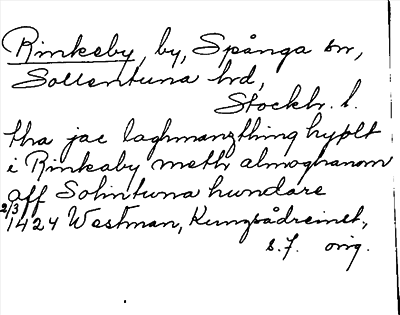 Rinkeby, by, Spånga sn,
Sollentuna hd,
Stockh. l.
tha jac laghmanzthing hyolt
i Rinkaby meth almoghanom
aff Solintuna hundare
2/3 1424 Westman, Kungsådreinst.,
s. 7. orig.